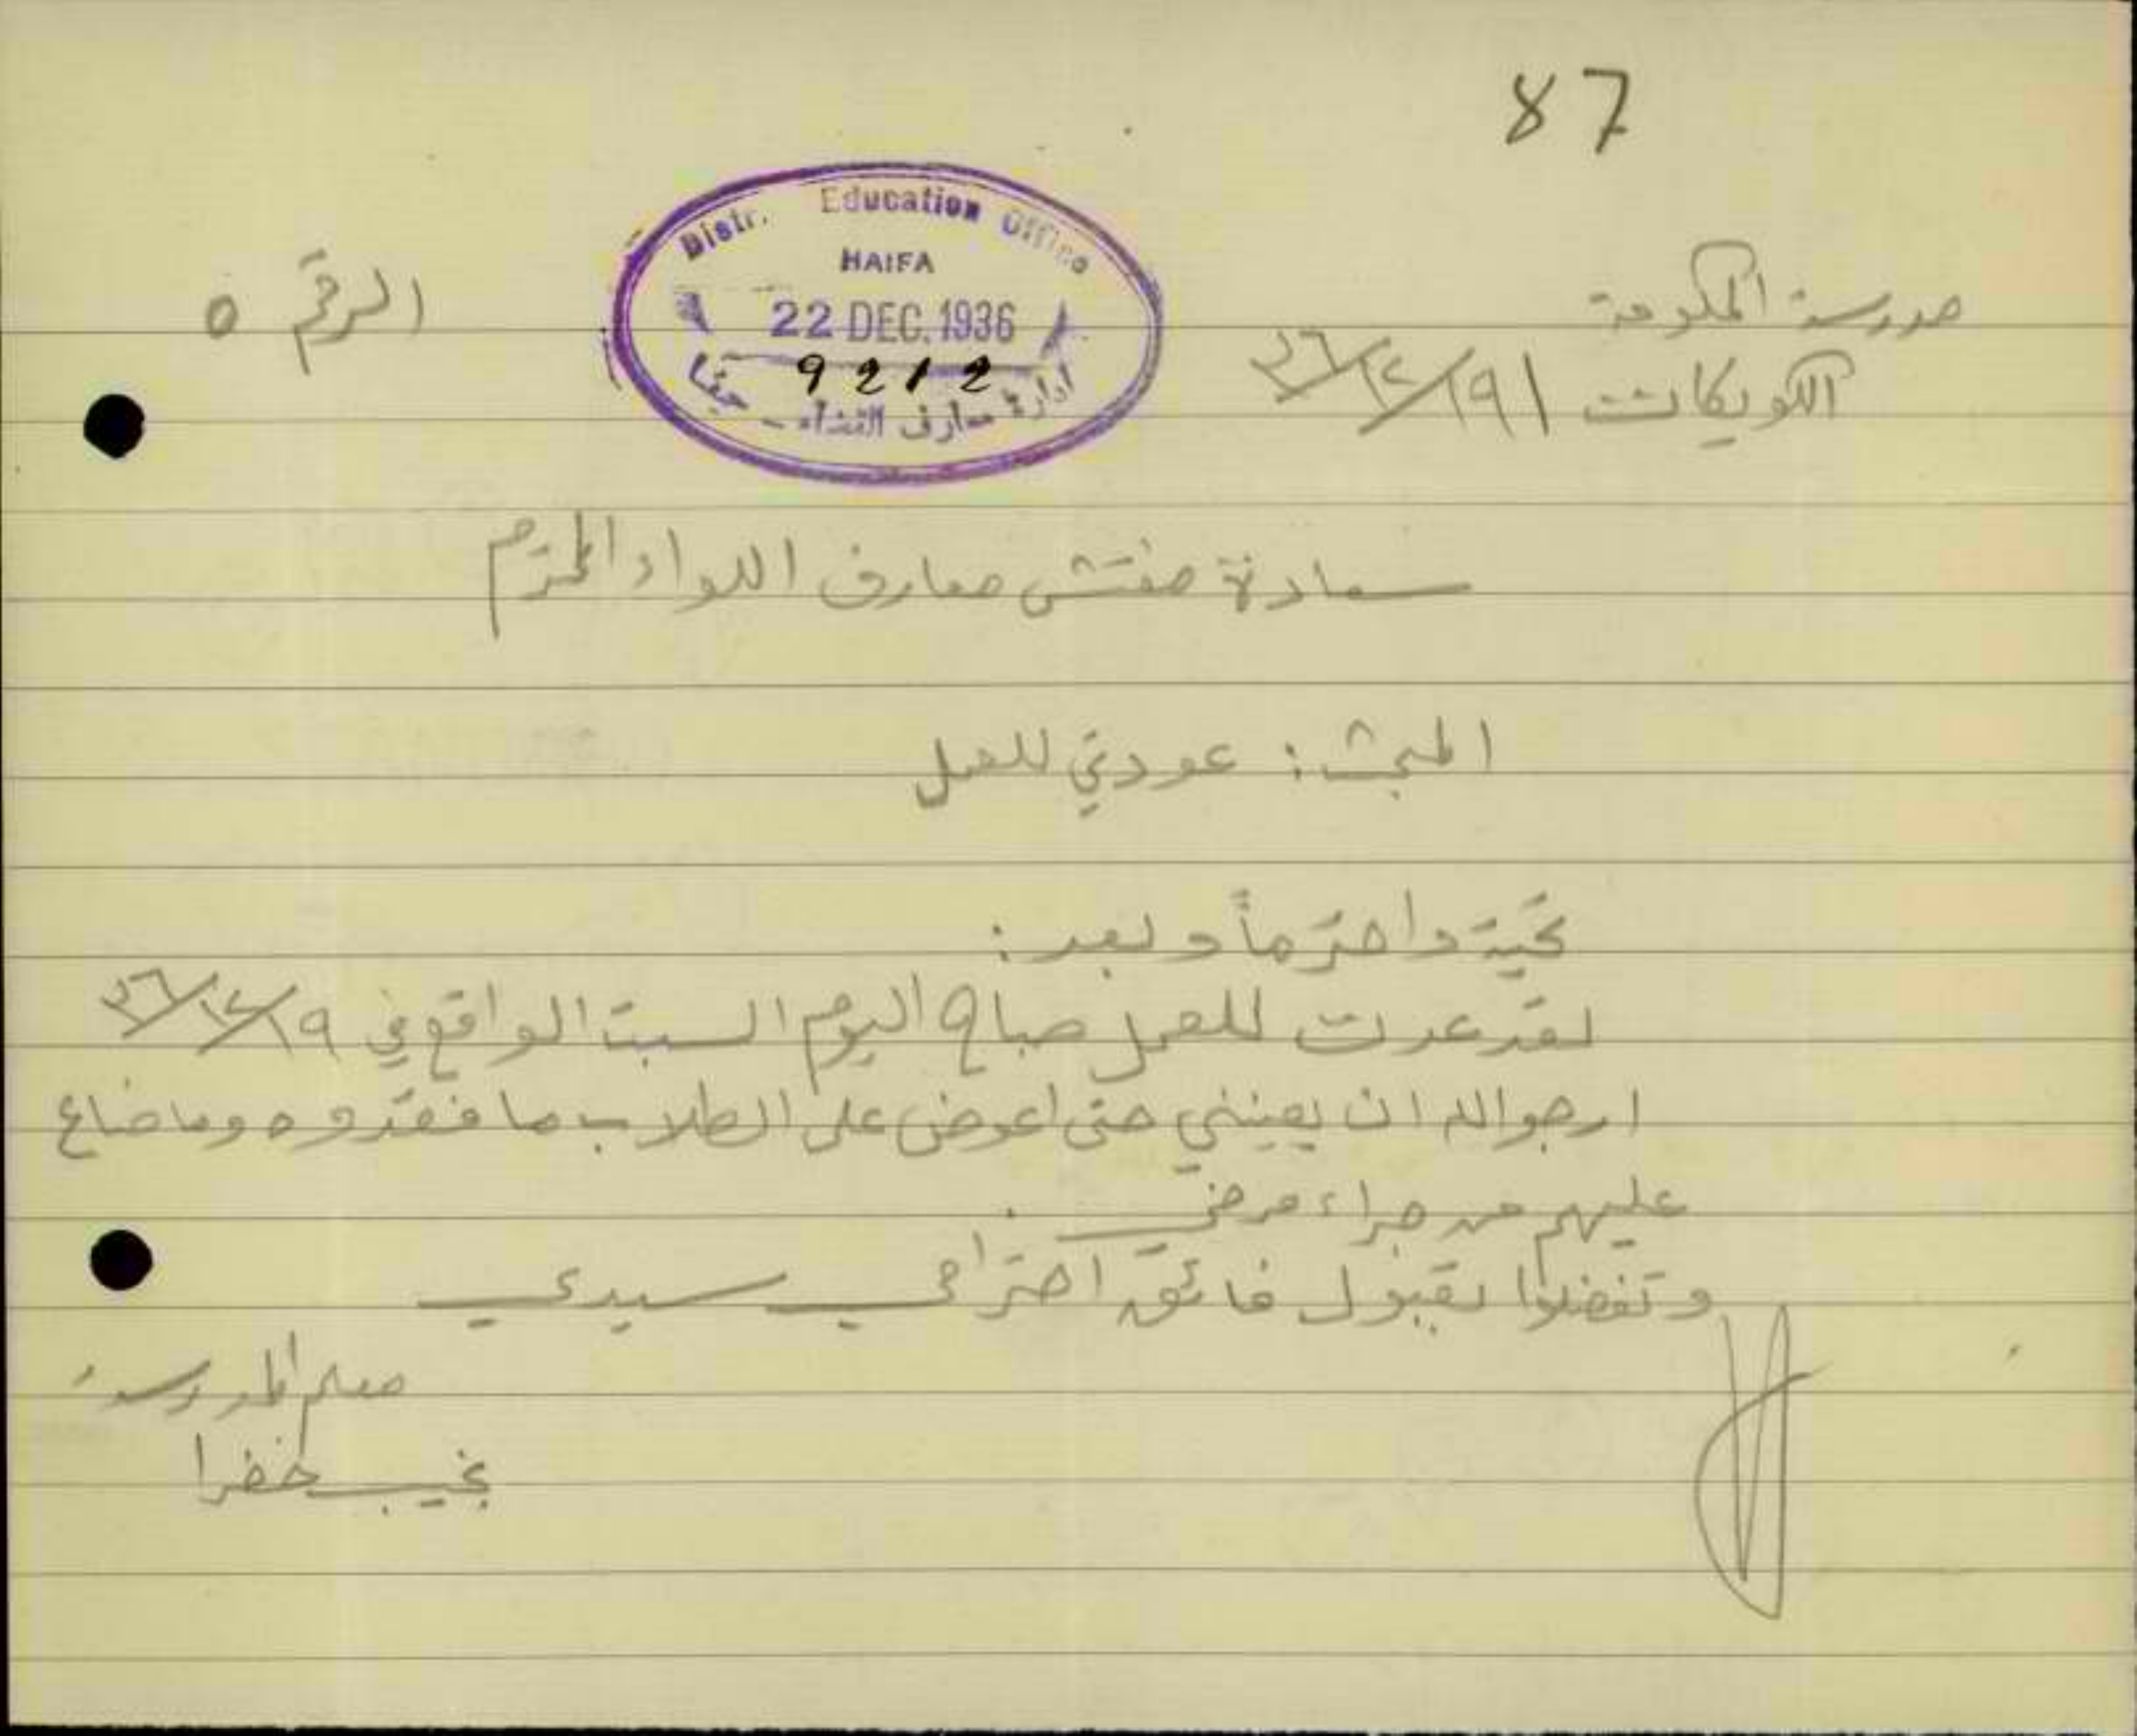 87
Distr. Education Office
HAIFA
22 DEC. 1936
9212
ادارة معارف القضاء - حيفا
الرقم ٥
مدرسة الحكومة
الكويكات ١٩/١٢/٣٦
سعادة مفتش معارف اللواء المحترم
المبحث : عودتي للعمل
تحية واحتراماً وبعد :
لقد عدت للعمل صباح اليوم السبت الواقع في ١٩/١٢/٣٦
ارجو الله ان يعينني حتى اعوض على الطلاب ما فقدوه وما ضاع
عليهم من جراء مرضي .
وتفضلوا بقبول فائق احترامي سيدي
معلم المدرسة
نجيب خضرا